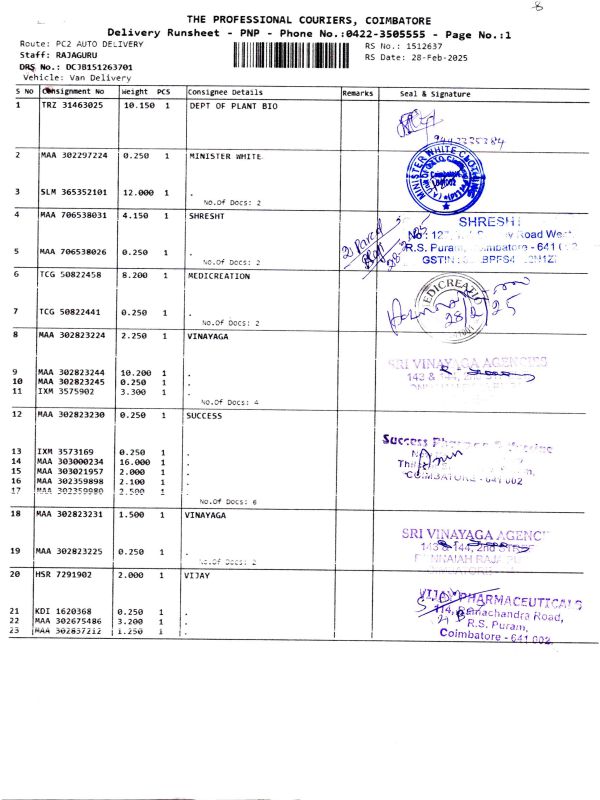 8
THE PROFESSIONAL COURIERS, COIMBATORE
Delivery Runsheet - PNP - Phone No.:0422-3505555 - Page No.:1
Route: PC2 AUTO DELIVERY RS No.: 1512637
Staff: RAJAGURU RS Date: 28-Feb-2025
DRS No.: DCJB151263701
Vehicle: Van Delivery
S No Consignment No Weight PCS Consignee Details Remarks Seal & Signature
1 TRZ 31463025 10.150 1 DEPT OF PLANT BIO
2 MAA 302297224 0.250 1 MINISTER WHITE
MINISTER WHITE
Coimbatore
3 SLM 365352101 12.000 1 .
No.Of Docs: 2
4 MAA 706538031 4.150 1 SHRESHT
2 Parcel
28-2-25
SHRESHT
Road West
R.S. Puram, Coimbatore - 641
GSTIN
5 MAA 706538026 0.250 1 .
No.Of Docs: 2
6 TCG 50822458 8.200 1 MEDICREATION
28/2/25
7 TCG 50822441 0.250 1 .
No.Of Docs: 2
8 MAA 302823224 2.250 1 VINAYAGA
SRI VINAYAGA AGENCIES
143 & 144, 2nd
9 MAA 302823244 10.200 1 .
10 MAA 302823245 0.250 1 .
11 IXM 3575902 3.300 1 .
No.Of Docs: 4
12 MAA 302823230 0.250 1 SUCCESS
Success
COIMBATORE - 641 002
13 IXM 3573169 0.250 1 .
14 MAA 303000234 16.000 1 .
15 MAA 303021957 2.000 1 .
16 MAA 302359898 2.100 1 .
17 MAA 302359980 2.500 1 .
No.Of Docs: 6
18 MAA 302823231 1.500 1 VINAYAGA
SRI VINAYAGA AGENC
143 & 144, 2nd
19 MAA 302823225 0.250 1 .
No.Of Docs: 2
20 HSR 7291902 2.000 1 VIJAY
VIJAY PHARMACEUTICALS
114, Ramachandra Road,
R.S. Puram,
Coimbatore - 641 002.
21 KDI 1620368 0.250 1 .
22 MAA 302675486 3.200 1 .
23 MAA 302837212 1.250 1 .